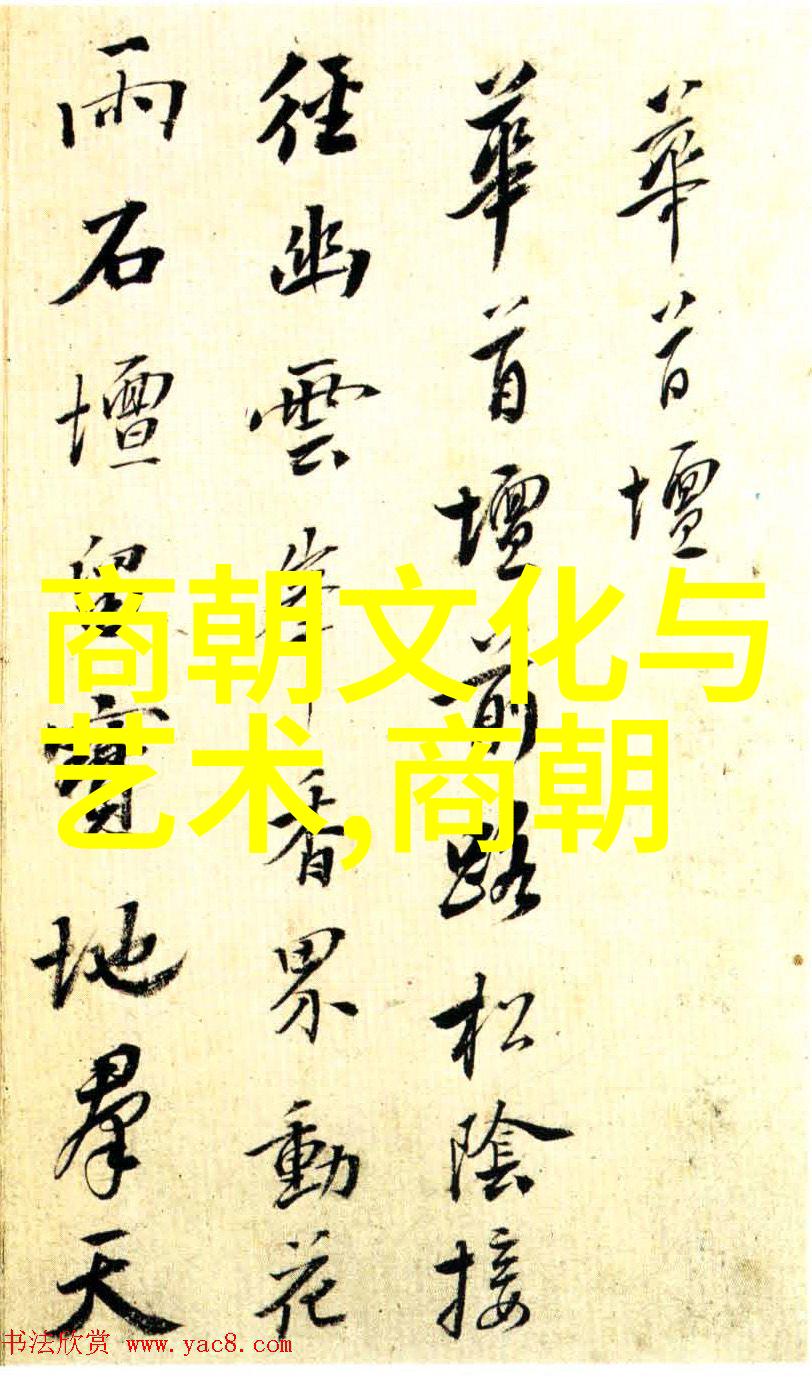 華首壇
華首壇前路松陰接
徑幽雲峰香界動花
雨石壇留寶地羣天
商朝文化与
艺术,商朝
书法欣赏 www.yac8.com